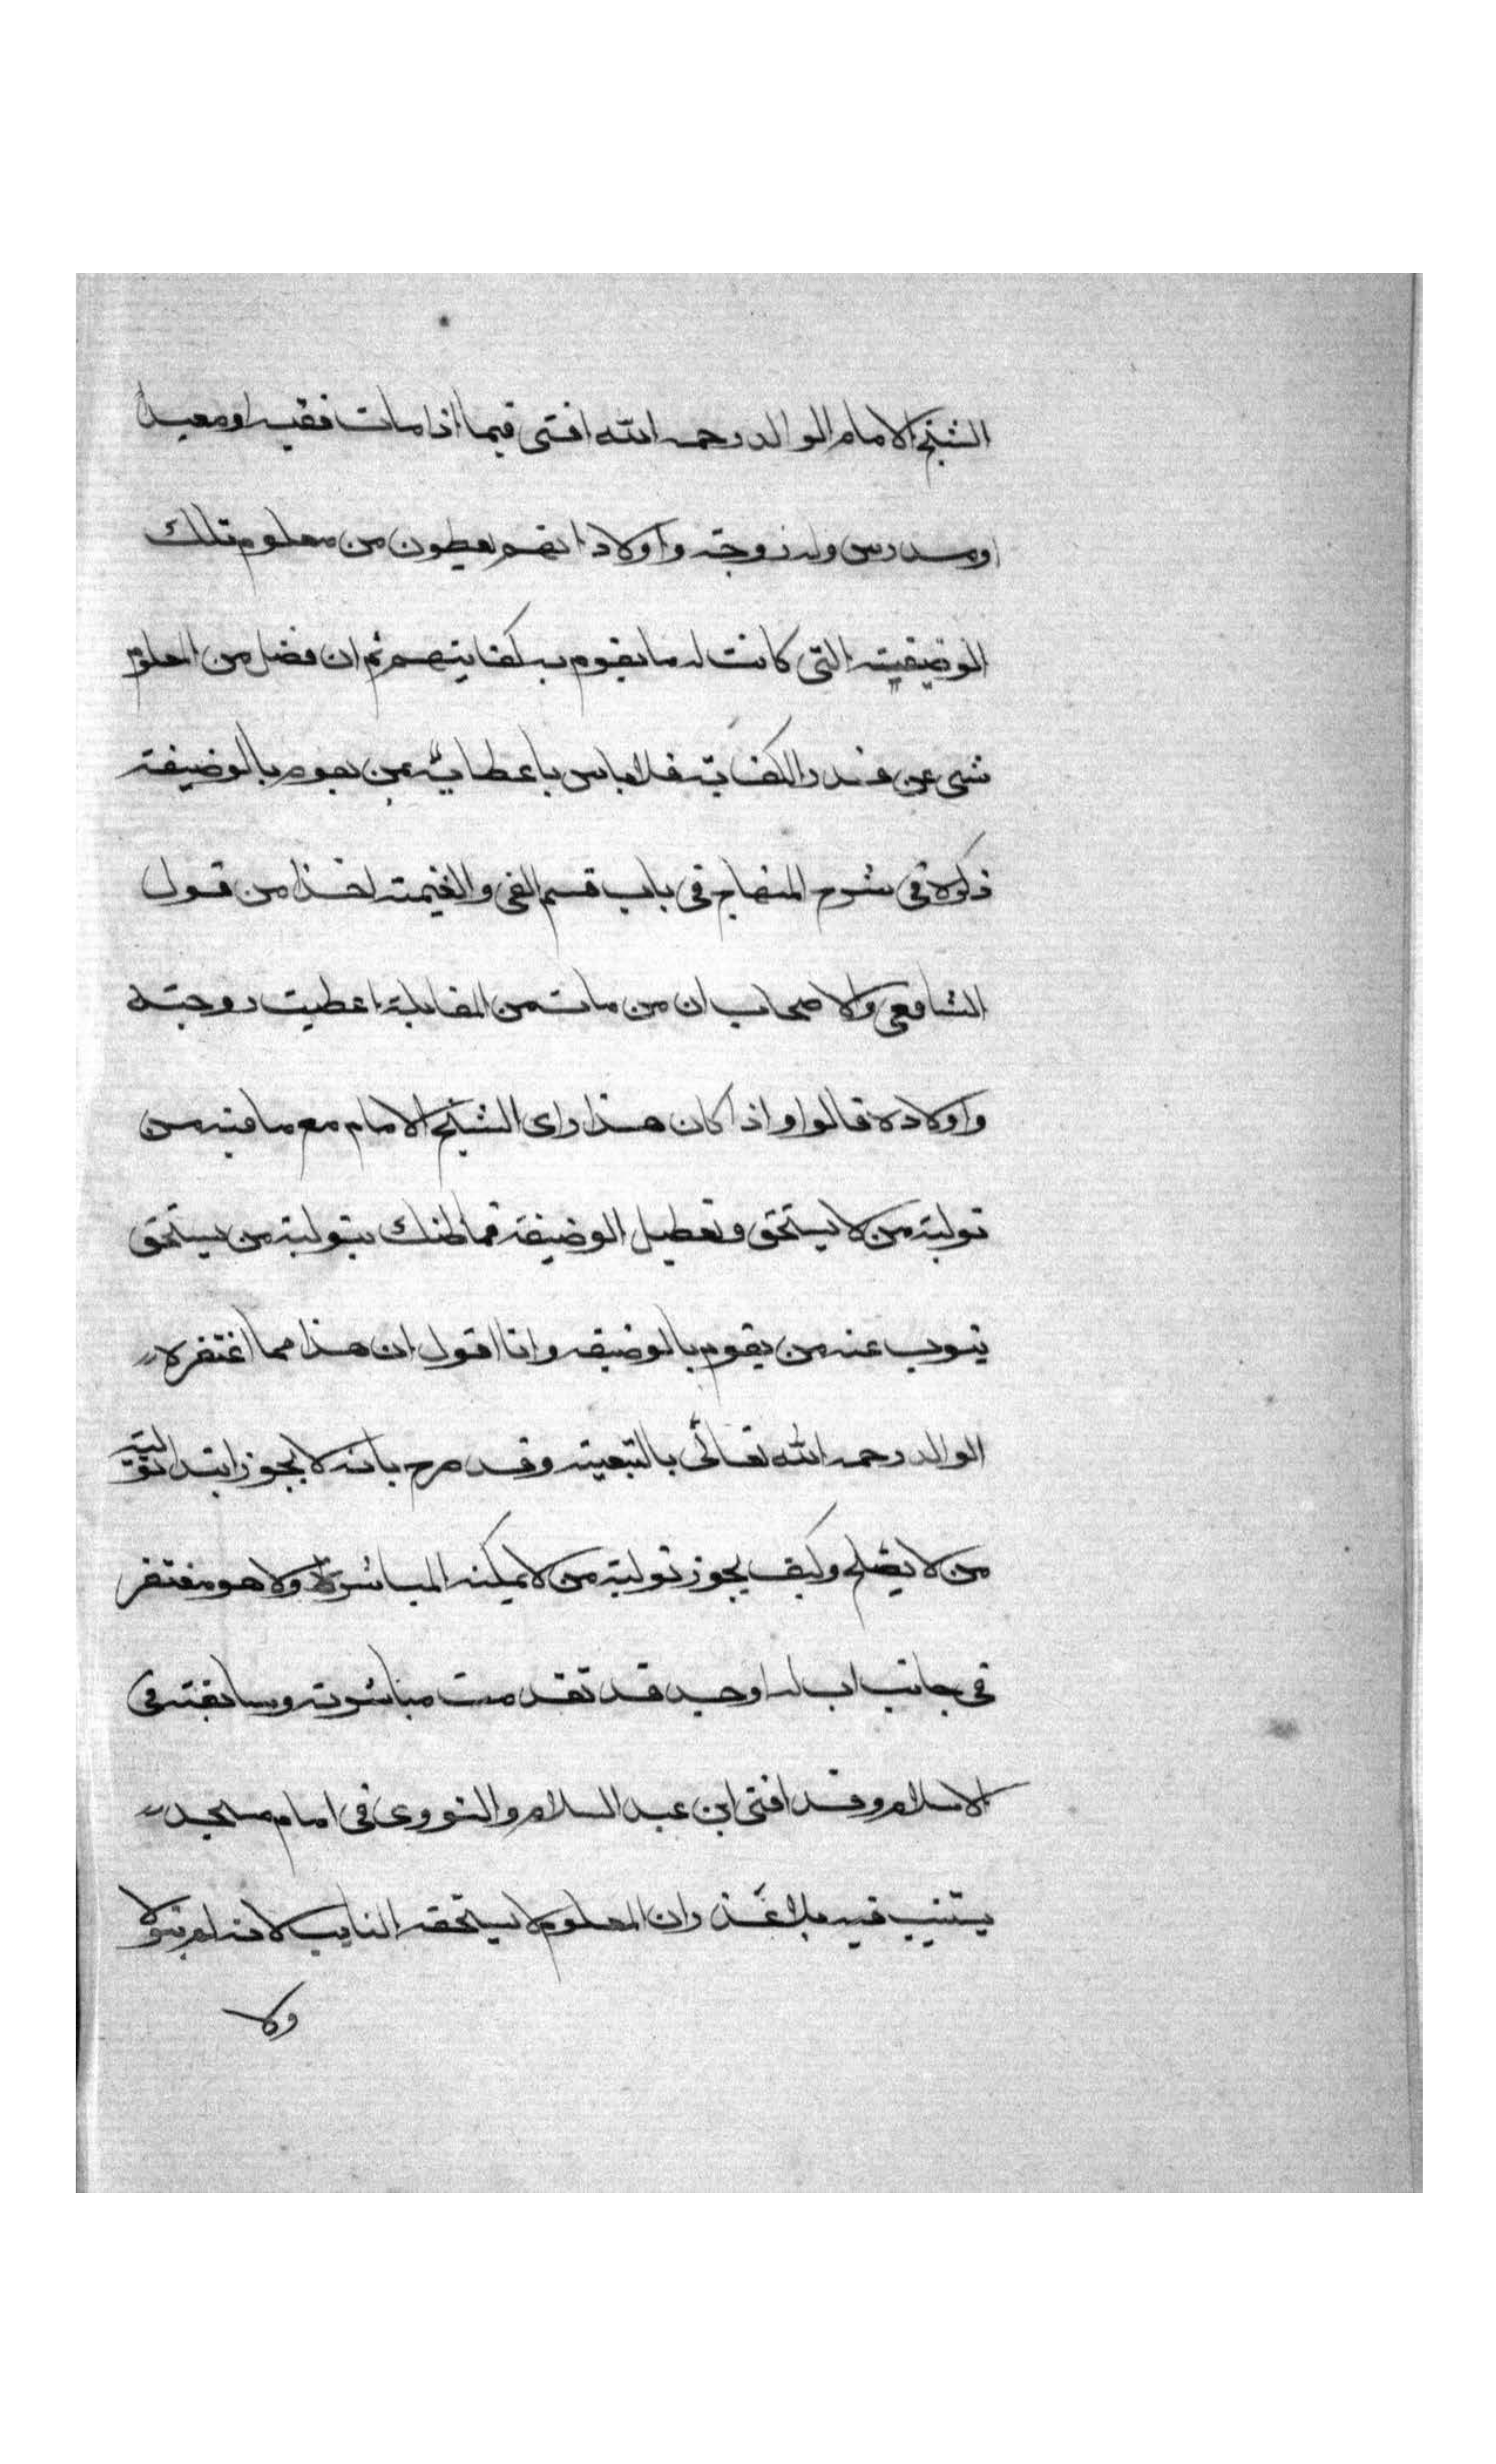 الشيخ الامام الوالد رحمه الله افتى فيما اذا مات فقيه او معيد
او مدرس وله زوجة واولاد انهم يعطون من معلوم تلك
الوضيفية التى كانت له ما يقوم به لكفايتهم ثم ان فضل من المعلوم
شى عن قدر الكفاية فلا باس باعطايه بمن يقوم بالوضيفة
ذكره فى شرح المنهاج فى باب قسم الفى والغنيمة اخذا من قول
الشافعى والاصحاب ان من مات من المقابلة اعطيت زوجته
واولاده قالوا واذا كان هذا راى الشيخ الامام مع ما فيه من
تولية من لا يستحق وتعطيل الوضيفة فما ظنك بتولية من يستحق
ينوب عنه من يقوم بالوضيفه وانا اقول ان هذا مما اغتفره
الوالد رحمه الله تعالى بالتبعية وقد صرح بانه لا يجوز ابتدا تولية
من لا يصلح وكيف يجوز تولية من لا يمكنه المباشرة ولا هو مغتفر
فى جانب اب له او جد قد تقدمت مباشرته وسابقته فى
الاسلام وقد افتى ابن عبد السلام والنووى فى امام مسجد
يستنيب فيه بلا عذر ان المعلوم لا يستحقه النايب لانه لم يتولا
ولا